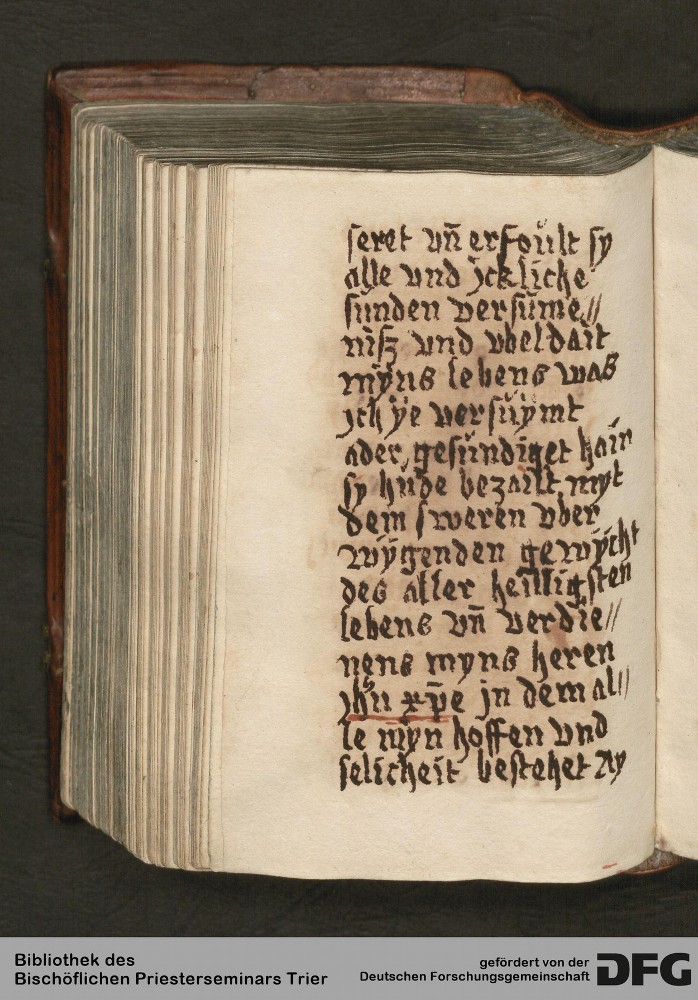 seret vn̄ erfoült sy
alle vnd jckliche
sunden versüme//
nisz vnd vbeldait
mÿns lebens was
jch ÿe versüÿmt
ader gesündiget hain
sy hude bezailt myt
dem sweren vber
wÿgenden gewÿcht
des aller heilligsten
lebens vn̄ verdie//
nens myns heren
jhū xp̄e jn dem al//
le mÿn hoffen vnd
selicheit bestehet Ay
Bibliothek des
Bischöflichen Priesterseminars Trier
gefördert von der
Deutschen Forschungsgemeinschaft
DFG